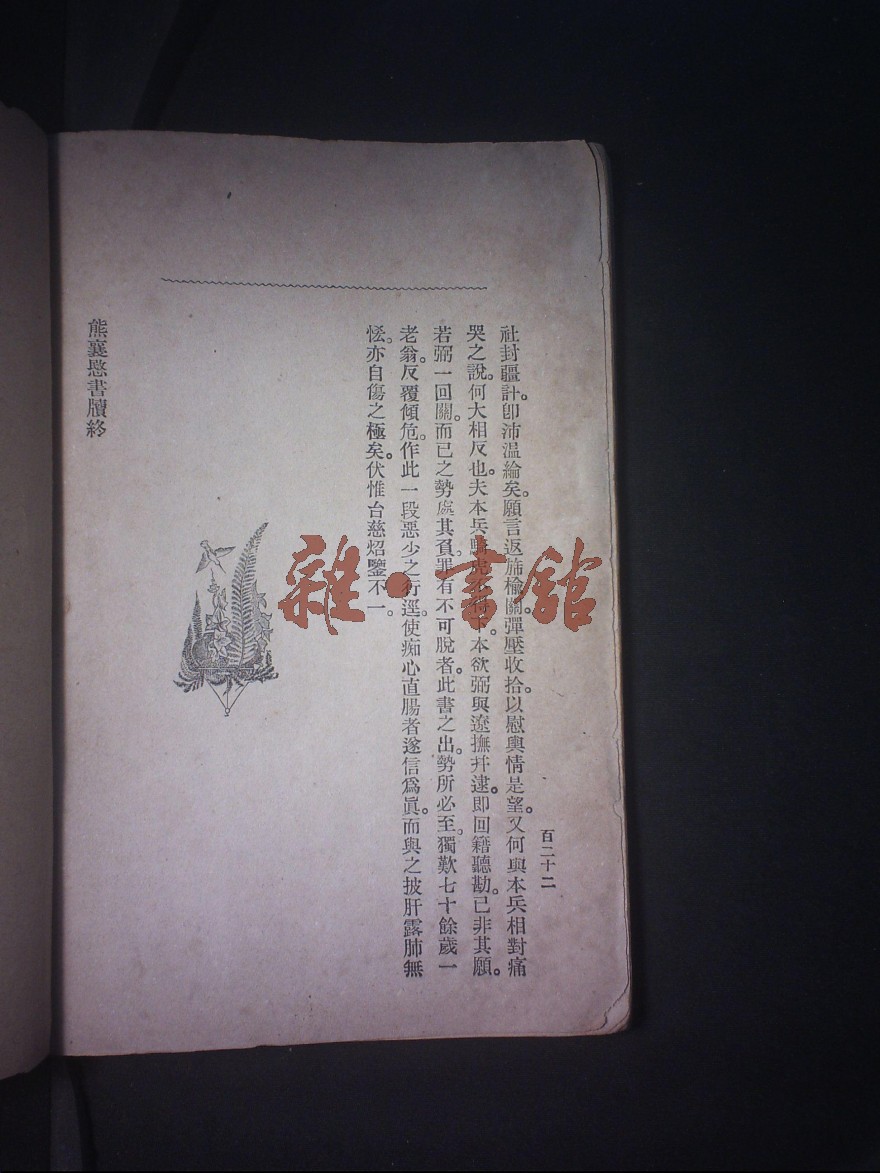 社封疆計。卽沛温綸矣。願言返旆榆關。彈壓收拾。以慰輿情是望。又何與本兵相對痛
哭之說。何大相反也。夫本兵騎虎不得下。本欲弼與遼撫幷逮。即回籍聽勘。已非其願。
若弼一回關。而已之勢處其負。罪有不可脫者。此書之出。勢所必至。獨歎七十餘歲一
老翁。反覆傾危。作此一段惡少之行逕。使痴心直腸者遂信爲眞。而與之披肝露肺無
恡。亦自傷之極矣。伏惟台慈炤鑒不一。
熊襄愍書牘終
百二十二
雜·書館